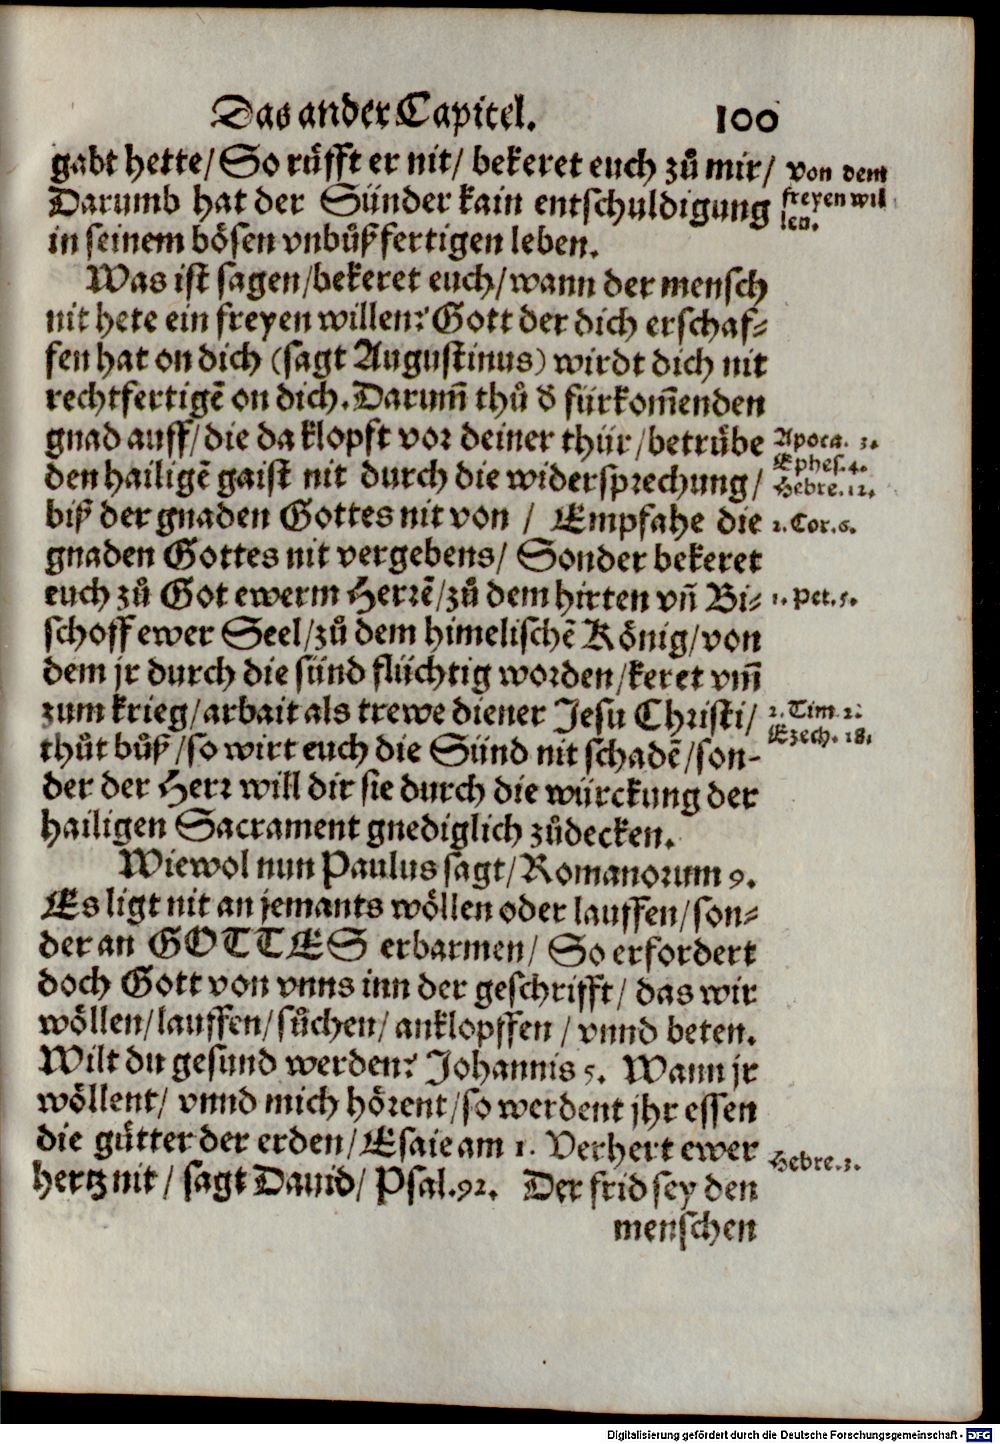 Das ander Capitel. 100
gabt hette/ So růfft er nit/ bekeret euch zů mir/
Von dem
Darumb hat der Sünder kain entschuldigung
freyen wil
len.
in seinem bösen vnbůßfertigen leben.
Was ist sagen/bekeret euch/wann der mensch
nit hete ein freyen willen? Gott der dich erschaf⸗
fen hat on dich (sagt Augustinus) wirdt dich nit
rechtfertigẽ on dich. Darum̃ thů d̕ fürkom̃enden
gnad auff/die da klopft vor deiner thür/betrůbe
Apoca. 3.
Ephes. 4.
den hailigẽ gaist nit durch die widersprechung/
Hebre. 12.
biß der gnaden Gottes nit von / Empfahe die
2. Cor. 6.
gnaden Gottes nit vergebens/ Sonder bekeret
euch zů Got ewerm Herrẽ/zů dem hirten vñ Bi⸗
1. Pet. 5.
schoff ewer Seel/zů dem himelischẽ König/von
dem jr durch die sünd flüchtig worden/keret vm̃
zum krieg/arbait als trewe diener Jesu Christi/
2. Tim. 2.
thůt bůß/so wirt euch die Sünd nit schadẽ/son-
Ezech. 18.
der der Herr will dir sie durch die würckung der
hailigen Sacrament gnediglich zůdecken.
Wiewol nun Paulus sagt/Romanorum 9.
Es ligt nit an jemants wöllen oder lauffen/son⸗
der an GOTTES erbarmen/ So erfordert
doch Gott von vnns inn der geschrifft/ das wir
wöllen/lauffen/sůchen/ anklopffen / vnnd beten.
Wilt du gesund werden? Johannis 5. Wann jr
wöllent/ vnnd mich hörent/so werdent jhr essen
die gůtter der erden/Esaie am 1. Verhert ewer
Hebre. 3.
hertz nit/ sagt Dauid/ Psal. 92. Der frid sey den
menschen
Digitalisierung gefördert durch die Deutsche Forschungsgemeinschaft - DFG